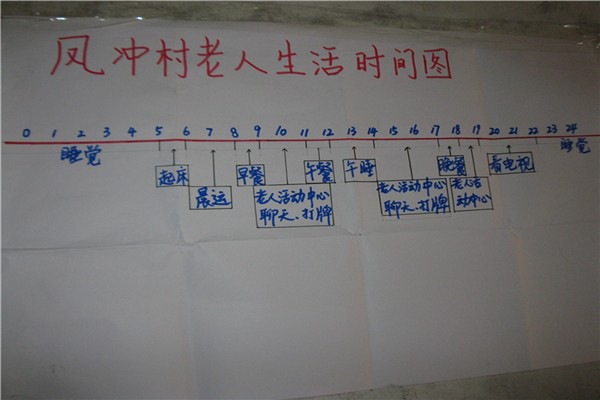 凤冲村老人生活时间图
0 1 2 3 4 5 6 7 8 9 10 11 12 13 14 15 16 17 18 19 20 21 22 23 24
睡觉
睡觉
起床
晨运
早餐
老人活动中心
聊天、打牌
午餐
午睡
老人活动中心
聊天、打牌
晚餐
老人活
动中心
看电视